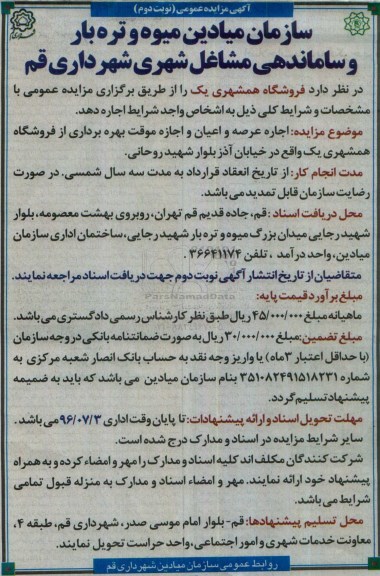 آگهی مزایده عمومی (نوبت دوم)
سازمان میادین میوه و تره بار
و ساماندهی مشاغل شهری شهرداری قم
در نظر دارد فروشگاه همشهری یک را از طریق برگزاری مزایده عمومی با
مشخصات و شرایط کلی ذیل به اشخاص واجد شرایط اجاره دهد.
موضوع مزایده: اجاره عرصه و اعیان و اجازه موقت بهره برداری از فروشگاه
همشهری یک واقع در خیابان آذر بلوار شهید روحانی.
مدت انجام کار: از تاریخ انعقاد قرارداد به مدت سه سال شمسی. در صورت
رضایت سازمان قابل تمدید می باشد.
محل دریافت اسناد: قم، جاده قدیم قم تهران، روبروی بهشت معصومه، بلوار
شهید رجایی میدان بزرگ میوه و تره بار شهید رجایی، ساختمان اداری سازمان
میادین، واحد درآمد ، تلفن ۳۶۶۴۱۱۷۴ .
متقاضیان از تاریخ انتشار آگهی نوبت دوم جهت دریافت اسناد مراجعه نمایند.
مبلغ برآورد قیمت پایه:
ParsNamadData
ماهیانه مبلغ ۴۵/۰۰۰/۰۰۰ ریال طبق نظر کارشناس رسمی دادگستری می باشد.
مبلغ تضمین: مبلغ ۳۰/۰۰۰/۰۰۰ ریال به صورت ضمانتنامه بانکی در وجه سازمان
(با حداقل اعتبار ۳ماه) یا واریز وجه نقد به حساب بانک انصار شعبه مرکزی به
شماره ۳۵۱۰۸۲۴۹۱۵۱۸۲۳۱ بنام سازمان میادین می باشد که باید به ضمیمه
پیشنهاد تسلیم گردد.
مهلت تحویل اسناد و ارائه پیشنهادات: تا پایان وقت اداری ۹۶/۰۷/۳ می باشد.
سایر شرایط مزایده در اسناد و مدارک درج شده است.
شرکت کنندگان مکلف اند کلیه اسناد و مدارک را مهر و امضاء کرده و به همراه
پیشنهاد خود ارائه نمایند. مهر و امضاء اسناد و مدارک به منزله قبول تمامی
شرایط می باشد.
محل تسلیم پیشنهادها: قم - بلوار امام موسی صدر، شهرداری قم، طبقه ۴،
معاونت خدمات شهری و امور اجتماعی، واحد حراست تحویل نمایند.
روابط عمومی سازمان میادین شهرداری قم